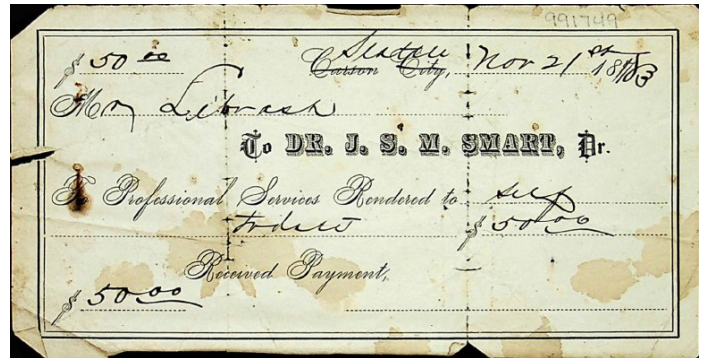 991749
$ 50 00 Carson City, Nov 21st 1883
Mr
To DR. J. S. M. SMART, Dr.
To Professional Services Rendered to self
to date $ 50.00
Received Payment,
$ 50.00